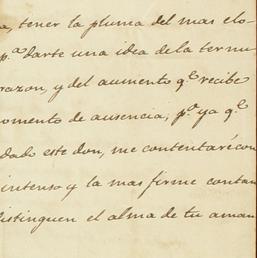 a, tener la pluma del mas elo-
p.ª darte una idea de la ternu
razon, y del aumento q.e recibe
omento de ausencia; p.º ya q.e
dado este don, me contentaré con
intenso y la mas firme contan
distinguen el alma de tu aman